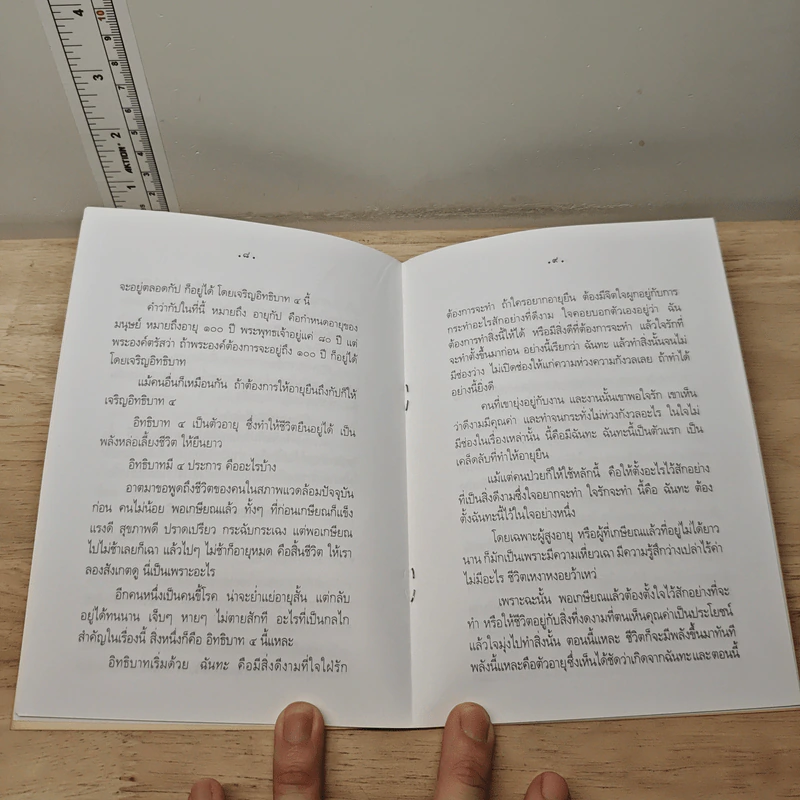 4
10
9
3
8
7
6
2
5
ACTION
4
1
3
2
.๘.
จะอยู่ตลอดกัป ก็อยู่ได้ โดยเจริญอิทธิบาท ๔ นี้
คำว่ากัปในที่นี้ หมายถึง อายุกัป คือกำหนดอายุของ
มนุษย์ หมายถึงอายุ ๑๐๐ ปี พระพุทธเจ้าอยู่แค่ ๘๐ ปี แต่
พระองค์ตรัสว่า ถ้าพระองค์ต้องการจะอยู่ถึง ๑๐๐ ปี ก็อยู่ได้
โดยเจริญอิทธิบาท
แม้คนอื่นก็เหมือนกัน ถ้าต้องการให้อายุยืนถึงกัปก็ให้
เจริญอิทธิบาท ๔
อิทธิบาท ๔ เป็นตัวอายุ ซึ่งทำให้ชีวิตยืนอยู่ได้ เป็น
พลังหล่อเลี้ยงชีวิต ให้ยืนยาว
อิทธิบาทมี ๔ ประการ คืออะไรบ้าง
อาตมาขอพูดถึงชีวิตของคนในสภาพแวดล้อมปัจจุบัน
ก่อน คนไม่น้อย พอเกษียณแล้ว ทั้งๆ ที่ก่อนเกษียณก็แข็ง
แรงดี สุขภาพดี ปราดเปรียว กระฉับกระเฉง แต่พอเกษียณ
ไปไม่ช้าเลยก็เฉา แล้วไปๆ ไม่ช้าก็อายุหมด คือสิ้นชีวิต ให้เรา
ลองสังเกตดู นี่เป็นเพราะอะไร
อีกคนหนึ่งเป็นคนขี้โรค น่าจะย่ำแย่อายุสั้น แต่กลับ
อยู่ได้ทนนาน เจ็บๆ หายๆ ไม่ตายสักที อะไรที่เป็นกลไก
สำคัญในเรื่องนี้ สิ่งหนึ่งก็คือ อิทธิบาท ๔ นี้แหละ
อิทธิบาทเริ่มด้วย ฉันทะ คือมีสิ่งดีงามที่ใจใฝ่รัก
.๙.
ต้องการจะทำ ถ้าใครอยากอายุยืน ต้องมีจิตใจผูกอยู่กับการ
กระทำอะไรสักอย่างที่ดีงาม ใจคอยบอกตัวเองอยู่ว่า ฉัน
ต้องการทำสิ่งนี้ให้ได้ หรือมีสิ่งดีที่ต้องการจะทำ แล้วใจรักที่
จะทำตั้งขึ้นมาก่อน อย่างนี้เรียกว่า ฉันทะ แล้วทำสิ่งนั้นจนไม่
มีช่องว่าง ไม่เปิดช่องให้แก่ความห่วงความกังวลเลย ถ้าทำได้
อย่างนี้ยิ่งดี
คนที่เขายุ่งอยู่กับงาน และงานนั้นเขาพอใจรัก เขาเห็น
ว่าดีงามมีคุณค่า และทำจนกระทั่งไม่ห่วงกังวลอะไร ในใจไม่
มีช่องในเรื่องเหล่านั้น นี้คือมีฉันทะ ฉันทะนี้เป็นตัวแรก เป็น
เคล็ดลับที่ทำให้อายุยืน
แม้แต่คนป่วยก็ให้ใช้หลักนี้ คือให้ตั้งอะไรไว้สักอย่าง
ที่เป็นสิ่งดีงามซึ่งใจอยากจะทำ ใจรักจะทำ นี้คือ ฉันทะ ต้อง
ตั้งฉันทะนี้ไว้ในใจอย่างหนึ่ง
โดยเฉพาะผู้สูงอายุ หรือผู้ที่เกษียณแล้วที่อยู่ไม่ได้ยาว
นาน ก็มักเป็นเพราะมีความเหี่ยวเฉา มีความรู้สึกว่างเปล่าไร้ค่า
ไม่มีอะไร ชีวิตเหงาหงอยว้าเหว่
เพราะฉะนั้น พอเกษียณแล้วต้องตั้งใจไว้สักอย่างที่จะ
ทำ หรือให้ชีวิตอยู่กับสิ่งที่งดงามที่ตนเห็นคุณค่าเป็นประโยชน์
แล้วใจมุ่งไปทำสิ่งนั้น ตอนนี้แหละ ชีวิตก็จะมีพลังขึ้นมาทันที
พลังนี้แหละคือตัวอายุซึ่งเห็นได้ชัดว่าเกิดจากฉันทะและตอนนี้